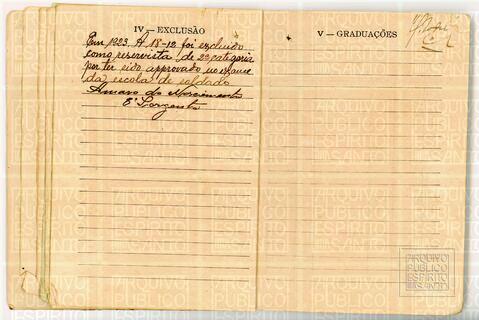 IV — EXCLUSÃO
Em 1923. A 18-12 foi excluido
como reservista de 2ª categoria
por ter sido approvado no exame
da escola de soldado
Amaro do Nascimento
2º Sargento
V — GRADUAÇÕES
ARQUIVO
PÚBLICO
ESPÍRITO
SANTO